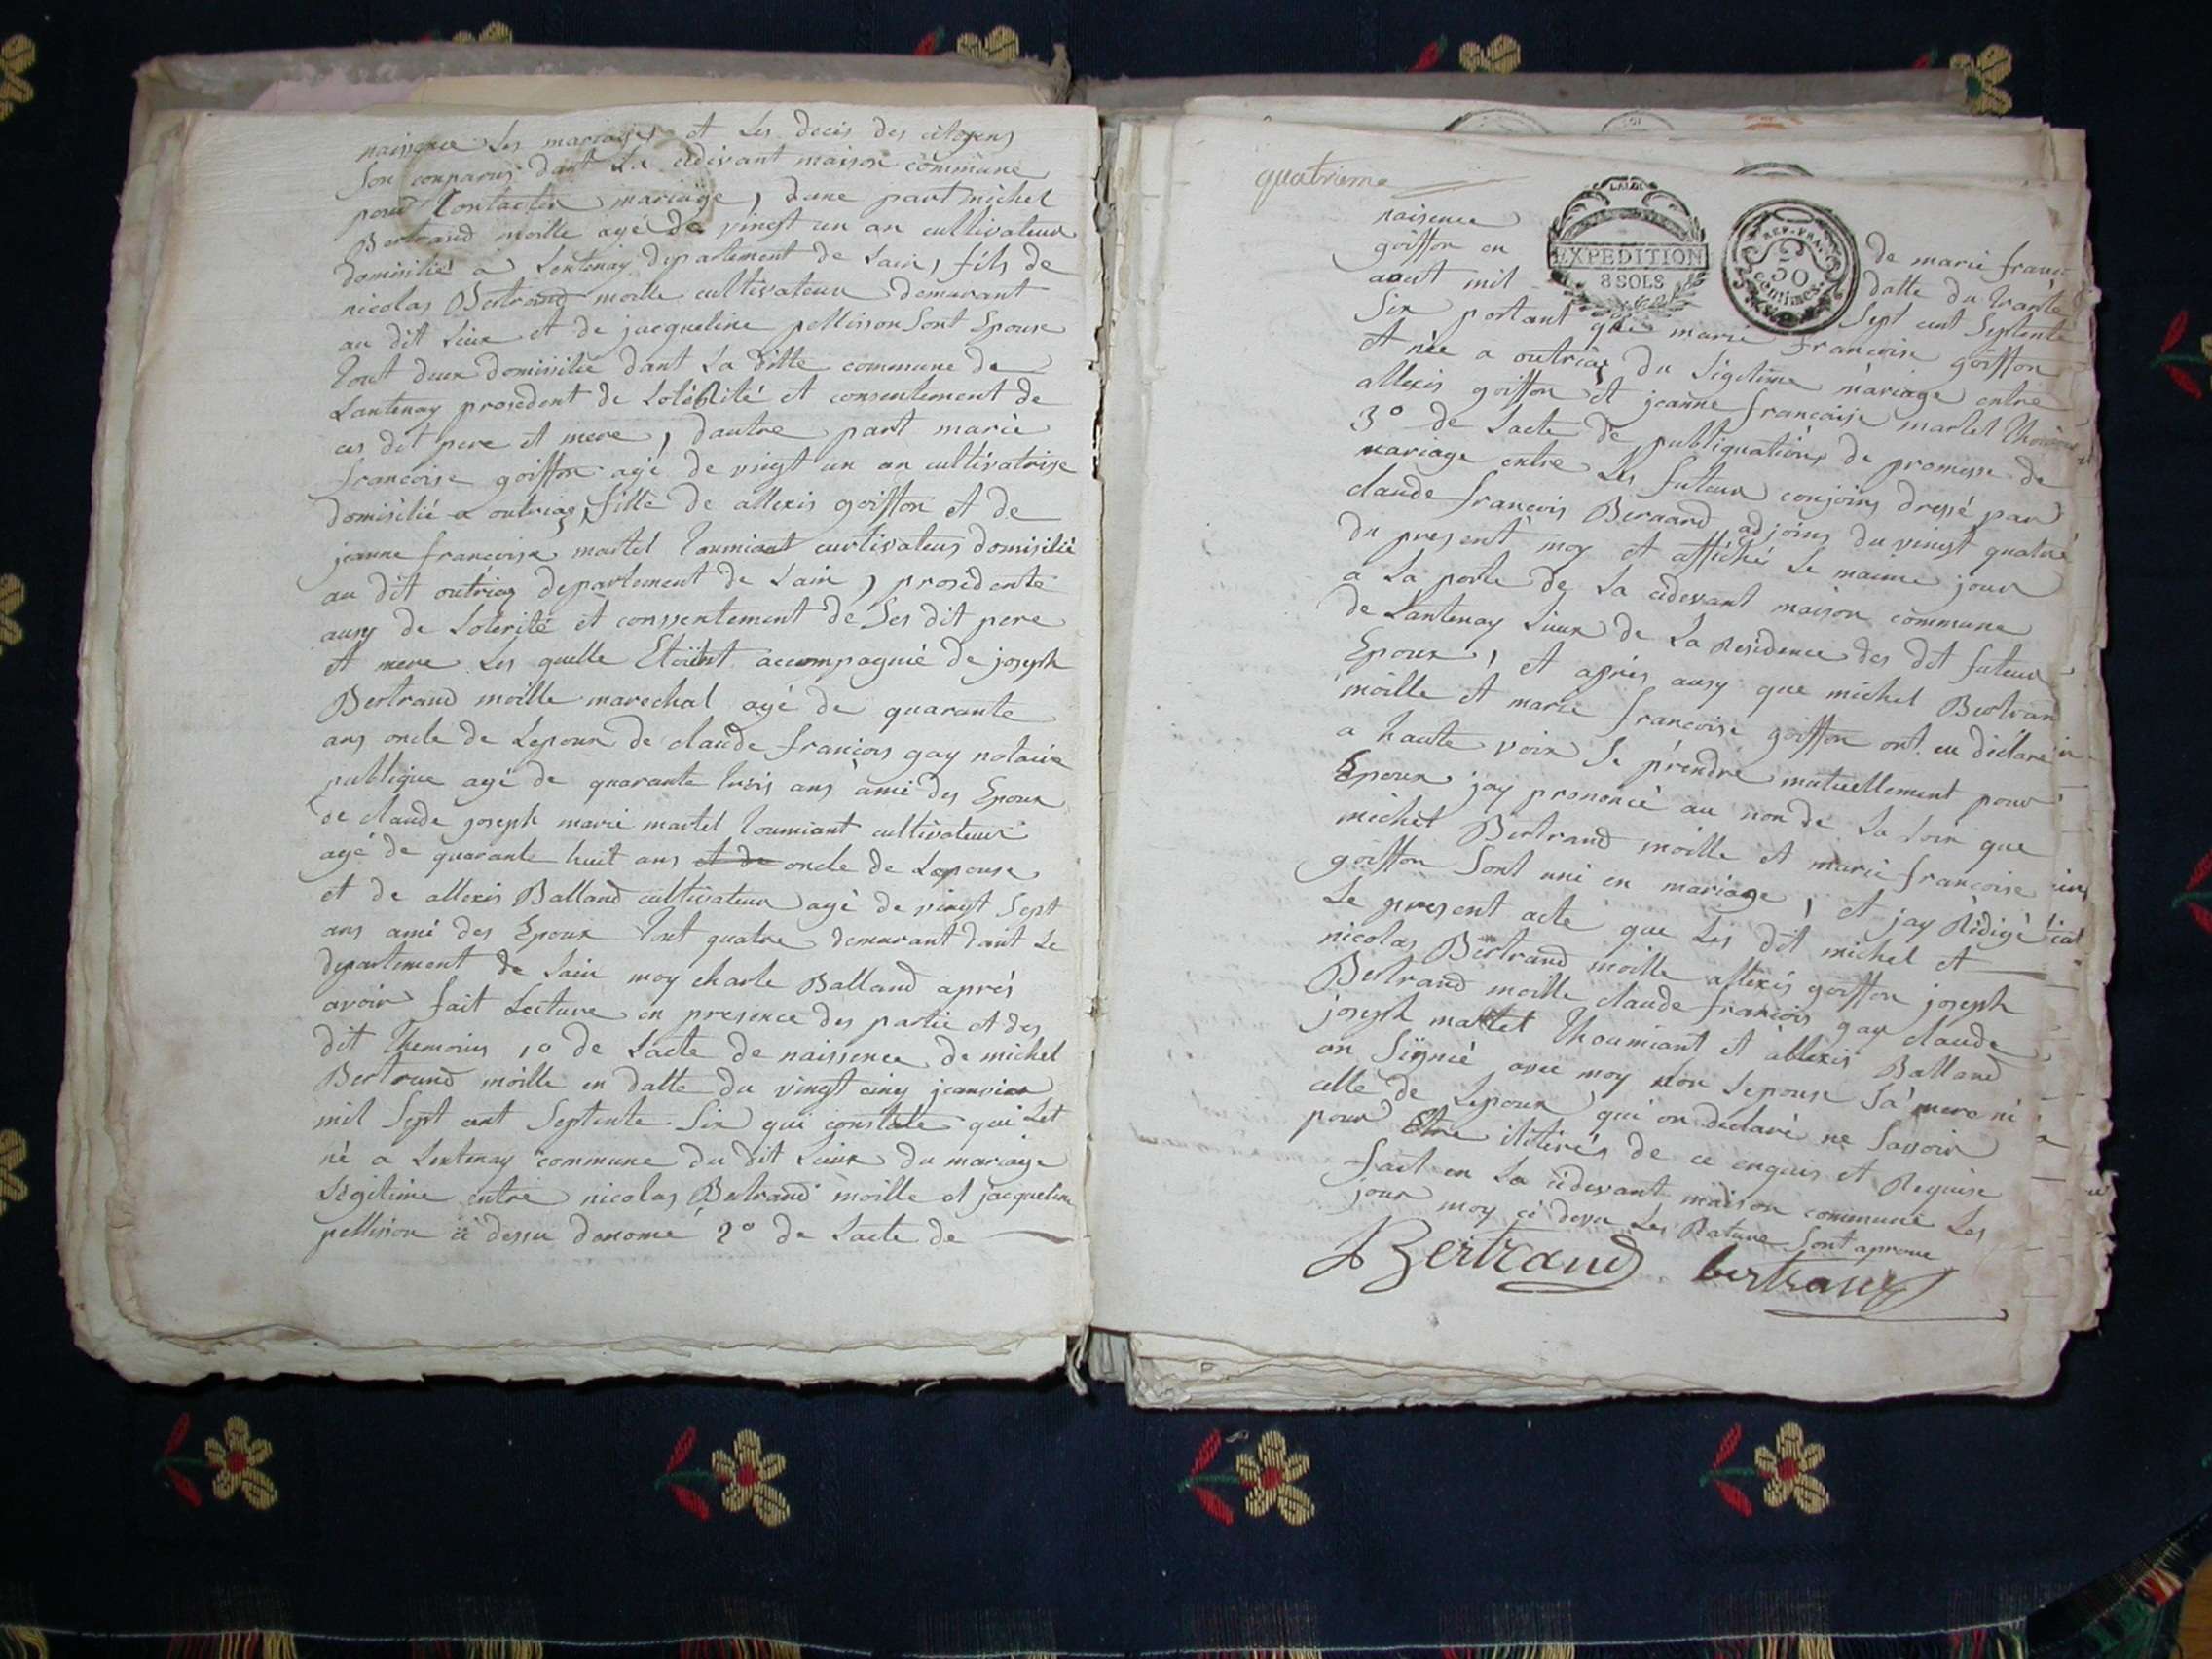 naissance Les mariages et Les decès des citoyens
Son conparus dant La cidevant maison commune
pour Contacter mariage, dune part michel
Bertrand moille agé de vingt un an cultivateur
domisilié a Lentenay departement de Lain, fils de
nicolas Bertrand moille cultivateur demeurant
au dit Lieux et de jacqueline pellisson Sont Epouse
tout deux domisilié dant La ditte commune de
Lantenay prosedent de Lotorité et consentement de
ces dit pere et mere, dautre part marie
francoise goiffon agé de vingt un an cultivatrise
domisilié a outriaz, fille de allexis goiffon et de
jeanne francoise martel toumiant cultivateus domisilié
au dit outriaz departement de Lain, prosedente
ausy de Lotorité et conssentement de Ses dit pere
et mere Les quelle Etoient accompagnié de joseph
Bertrand moille marechal agé de quarante
ans oncle de Lepoux de claude francois gay notaire
publique agé de quarante trois ans ami des Epoux
de claude joseph marie martel toumiant cultivateur
agé de quarante huit ans et de oncle de Lepouse
et de allexis Balland cultivateur agé de vingt Sept
ans ami des Epoux tout quatre demurant dant Le
departement de Lain moy charle Balland aprés
avoir fait Lecture en presence des partie et des
dit themoins 1o de Lacte de naissence de michel
Bertrand moille en datte du vingt cinq jeanvier
mil Sept cent Septente Six qui constate qui Let
né a Lentenay commune du dit Lieux du mariage
Légitime entre nicolas Bertrand moille et jacqueline
pellisson ci dessu denomé 2o de Lacte de
quatrieme
naisence de marie franc
goiffon en datte du trante
aout mil Sept cent Septente
EXPEDITION
8 SOLS
REP. FRA.
50
centimes
Six portant que marie francoise goiffon
et née a outriaz du Légitime mariage entre
allexis goiffon et jeanne francoise martel
3o de Lacte de publiquations de promesse de
mariage entre Les futeur conjoins dressé par
claude francois Bernard adjoins du vingt quatre
du present moy et affiché Le maime jour
a La porte de La cidevant maison commune
de Lantenay Lieux de La Residence des dit futeur
Epoux, et aprés ausy que michel Bertran
moille et marie francoise goiffon ont eu déclaré
a haute voix Se prendre mutuellement pour
Epoux jay prononcé au non de La Loix que
michel Bertrand moille et marie francoise
goiffon Sont uni en mariage, et jay Rédigé
Le present acte que Les dit michel et
nicolas Bertrand moille allexis goiffon joseph
Bertrand moille claude francois gay claude
joseph martel thoumiant et allexis Balland
on Signié avec moy non Lepouse Sa mere ni
celle de Lepoux qui on declaré ne Savoir
pour Etre ilitirés de ce enquis et Requise
fait en La cidevant maison commune Les
jour moy ci desu Les Rature Sont aprouve
Bertrand bertrand